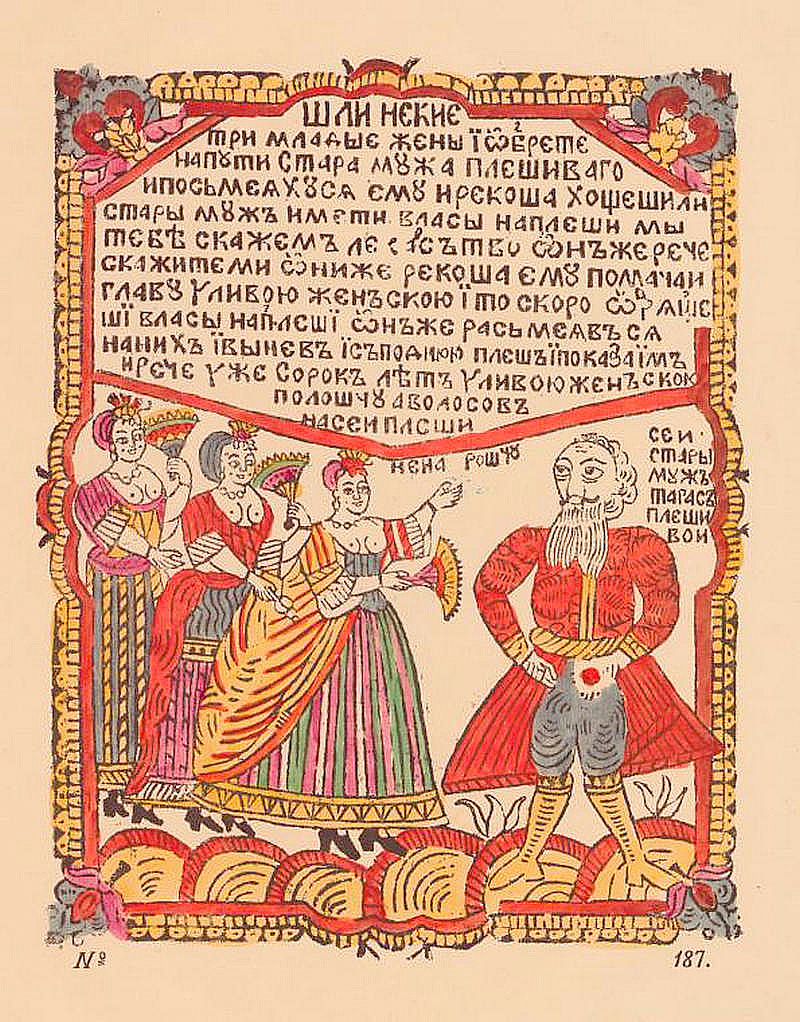 ШЛИ НЕКИЕ
ТРИ МЛАДЫЕ ЖЕНЫ Ї ѾБРЕТЕ
НАПꙊТИ СТАРА МꙊЖА ПЛЕШИВАГО
ИПОСЬМЕЯХꙊСЯ ЕМꙊ ИРЕКОША ХОЩЕШИЛИ
СТАРЫ МꙊЖЪ ИМѢТИ ВЛАСЫ НАПЛЕШИ МЫ
ТЕБѢ СКАЖЕМЪ ѾНЪЖЕРЕЧЕ
СКАЖИТЕМИ ѾНИЖЕ РЕКОША ЕМꙊ ПОМАЧАИ
ГЛАВꙊ УЛИВОЮ ЖЕНЪСКОЮ Ї ТО СКОРО
ШЇ ВЛАСЫ НАПЛЕШЇ ѾНЪЖЕ РАСЬМЕЯВЪ СЯ
НАНИХЪ ЇВЫНЕВЪ ЇСЪПОДНЮЮ ПЛЕШЪ ЇПОКАЗАЇМЪ
ИРЕЧЕ УЖЕ СОРОКЪ ЛѢТЪ УЛИВОЮЖЕНЪСКОЮ
ПОЛОЩꙊ АВОЛОСОВЪ
НАСЕИ ПЛЕШИ
НЕНА РОЩꙊ
СЕИ
СТАРЫ
МꙊЖЪ
ТАРАСЪ
ПЛЕШИ
ВОИ
№ 187.